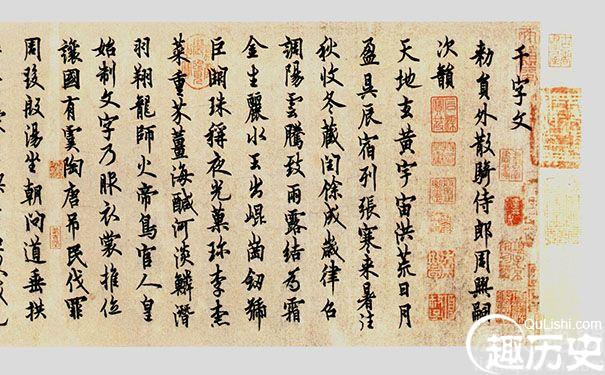 千字文
勅員外散騎侍郎周興嗣
次韻
天地玄黃宇宙洪荒日月
盈昃辰宿列張寒来暑往
秋收冬藏閏餘成歲律召
調陽雲騰致雨露結為霜
金生麗水玉出崐崗劒號
巨闕珠稱夜光菓珎李柰
菜重芥薑海鹹河淡鱗潛
羽翔龍師火帝鳥官人皇
始制文字乃服衣裳推位
讓國有虞陶唐吊民伐罪
周發殷湯坐朝問道垂拱
QuLishi.com
趣历史